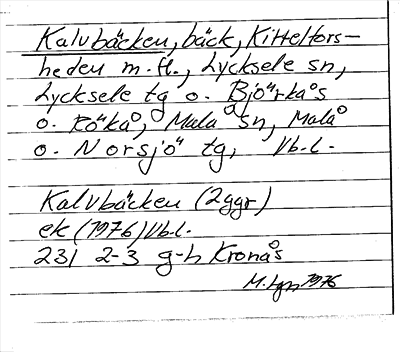 Kalvbäcken, bäck, Kittelfors-
heden m.fl., Lycksele sn,
Lycksele tg o. Björkås
o. Rökå, Malå sn, Malå
o. Norsjö tg, Vb.l.
Kalvbäcken (2ggr)
ek (1976) Vb.l.
231 2-3 g-h Kronås
M. Lgn 1976